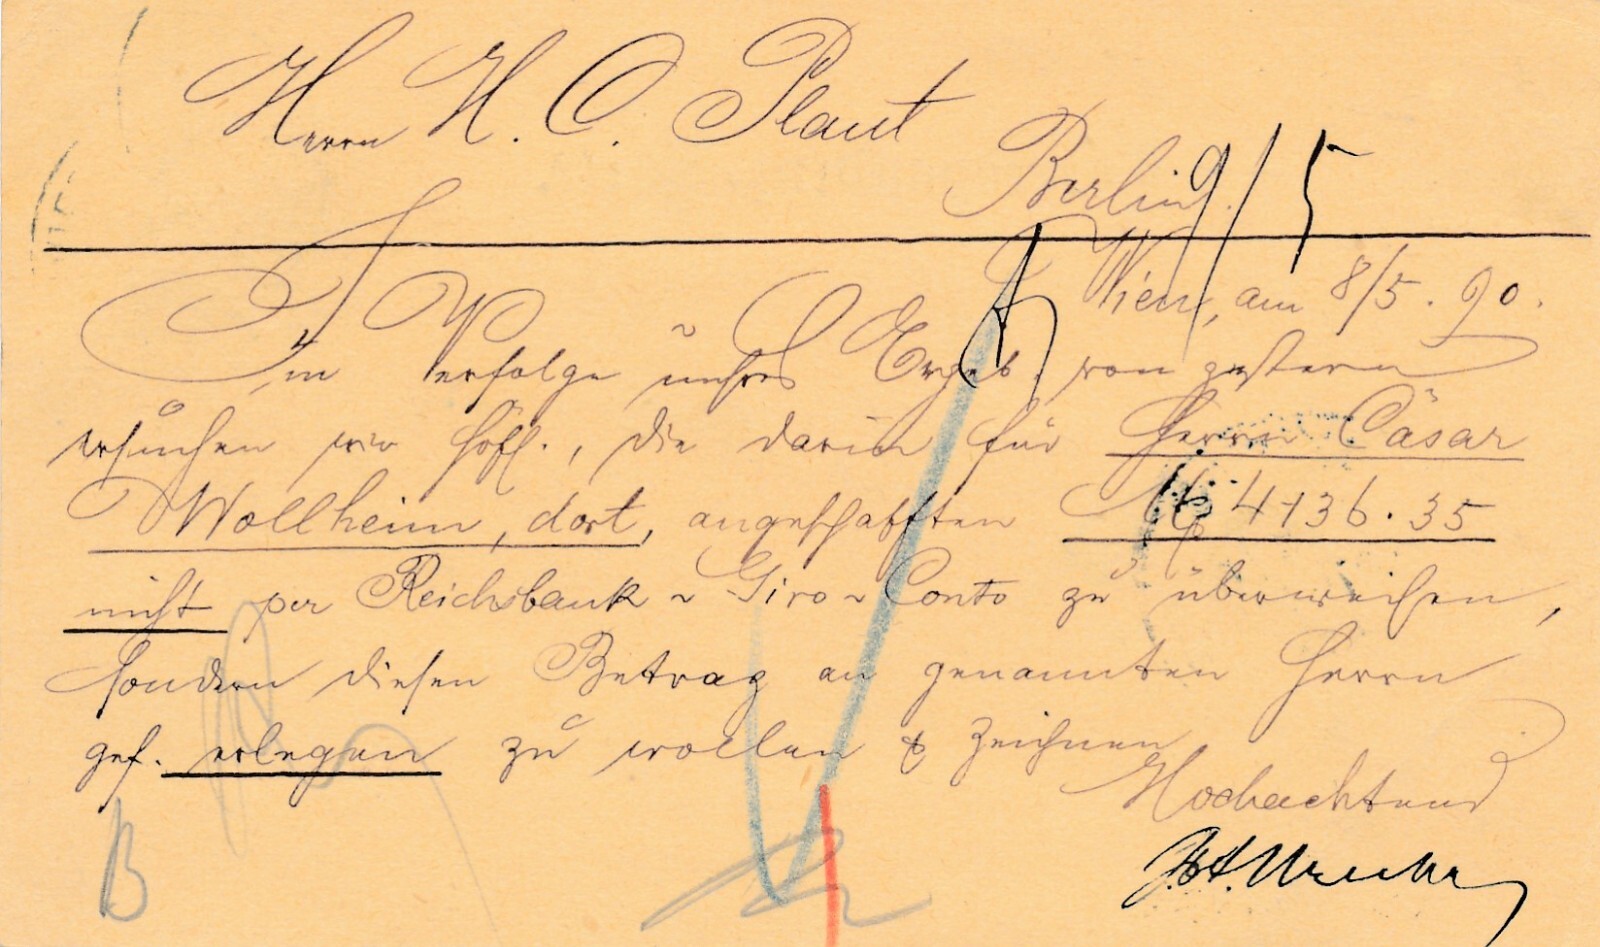 Herrn H. C. Plaut
Berlin.
9/5
Wien, am 8/5. 90.
Im Verfolge unsres Ergeb. von gestern
ersuchen wir höfl., die darin für Herrn Cäsar
Wollheim, dort, angeschafften M 4136.35
nicht per Reichsbank-Giro-Conto zu überweisen,
sondern diesen Betrag an genannten Herrn
gef. erlegen zu wollen & zeichnen
Hochachtend
B